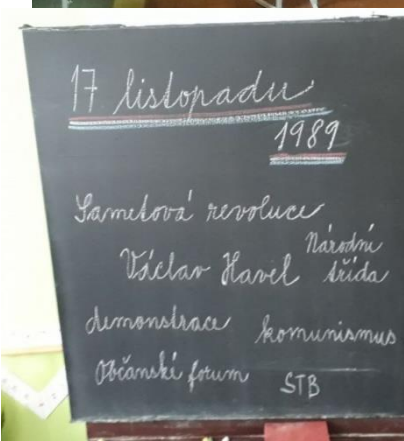 17 listopadu
1989
Sametová revoluce
Národní
Václav Havel třída
demonstrace komunismus
Občanské forum STB